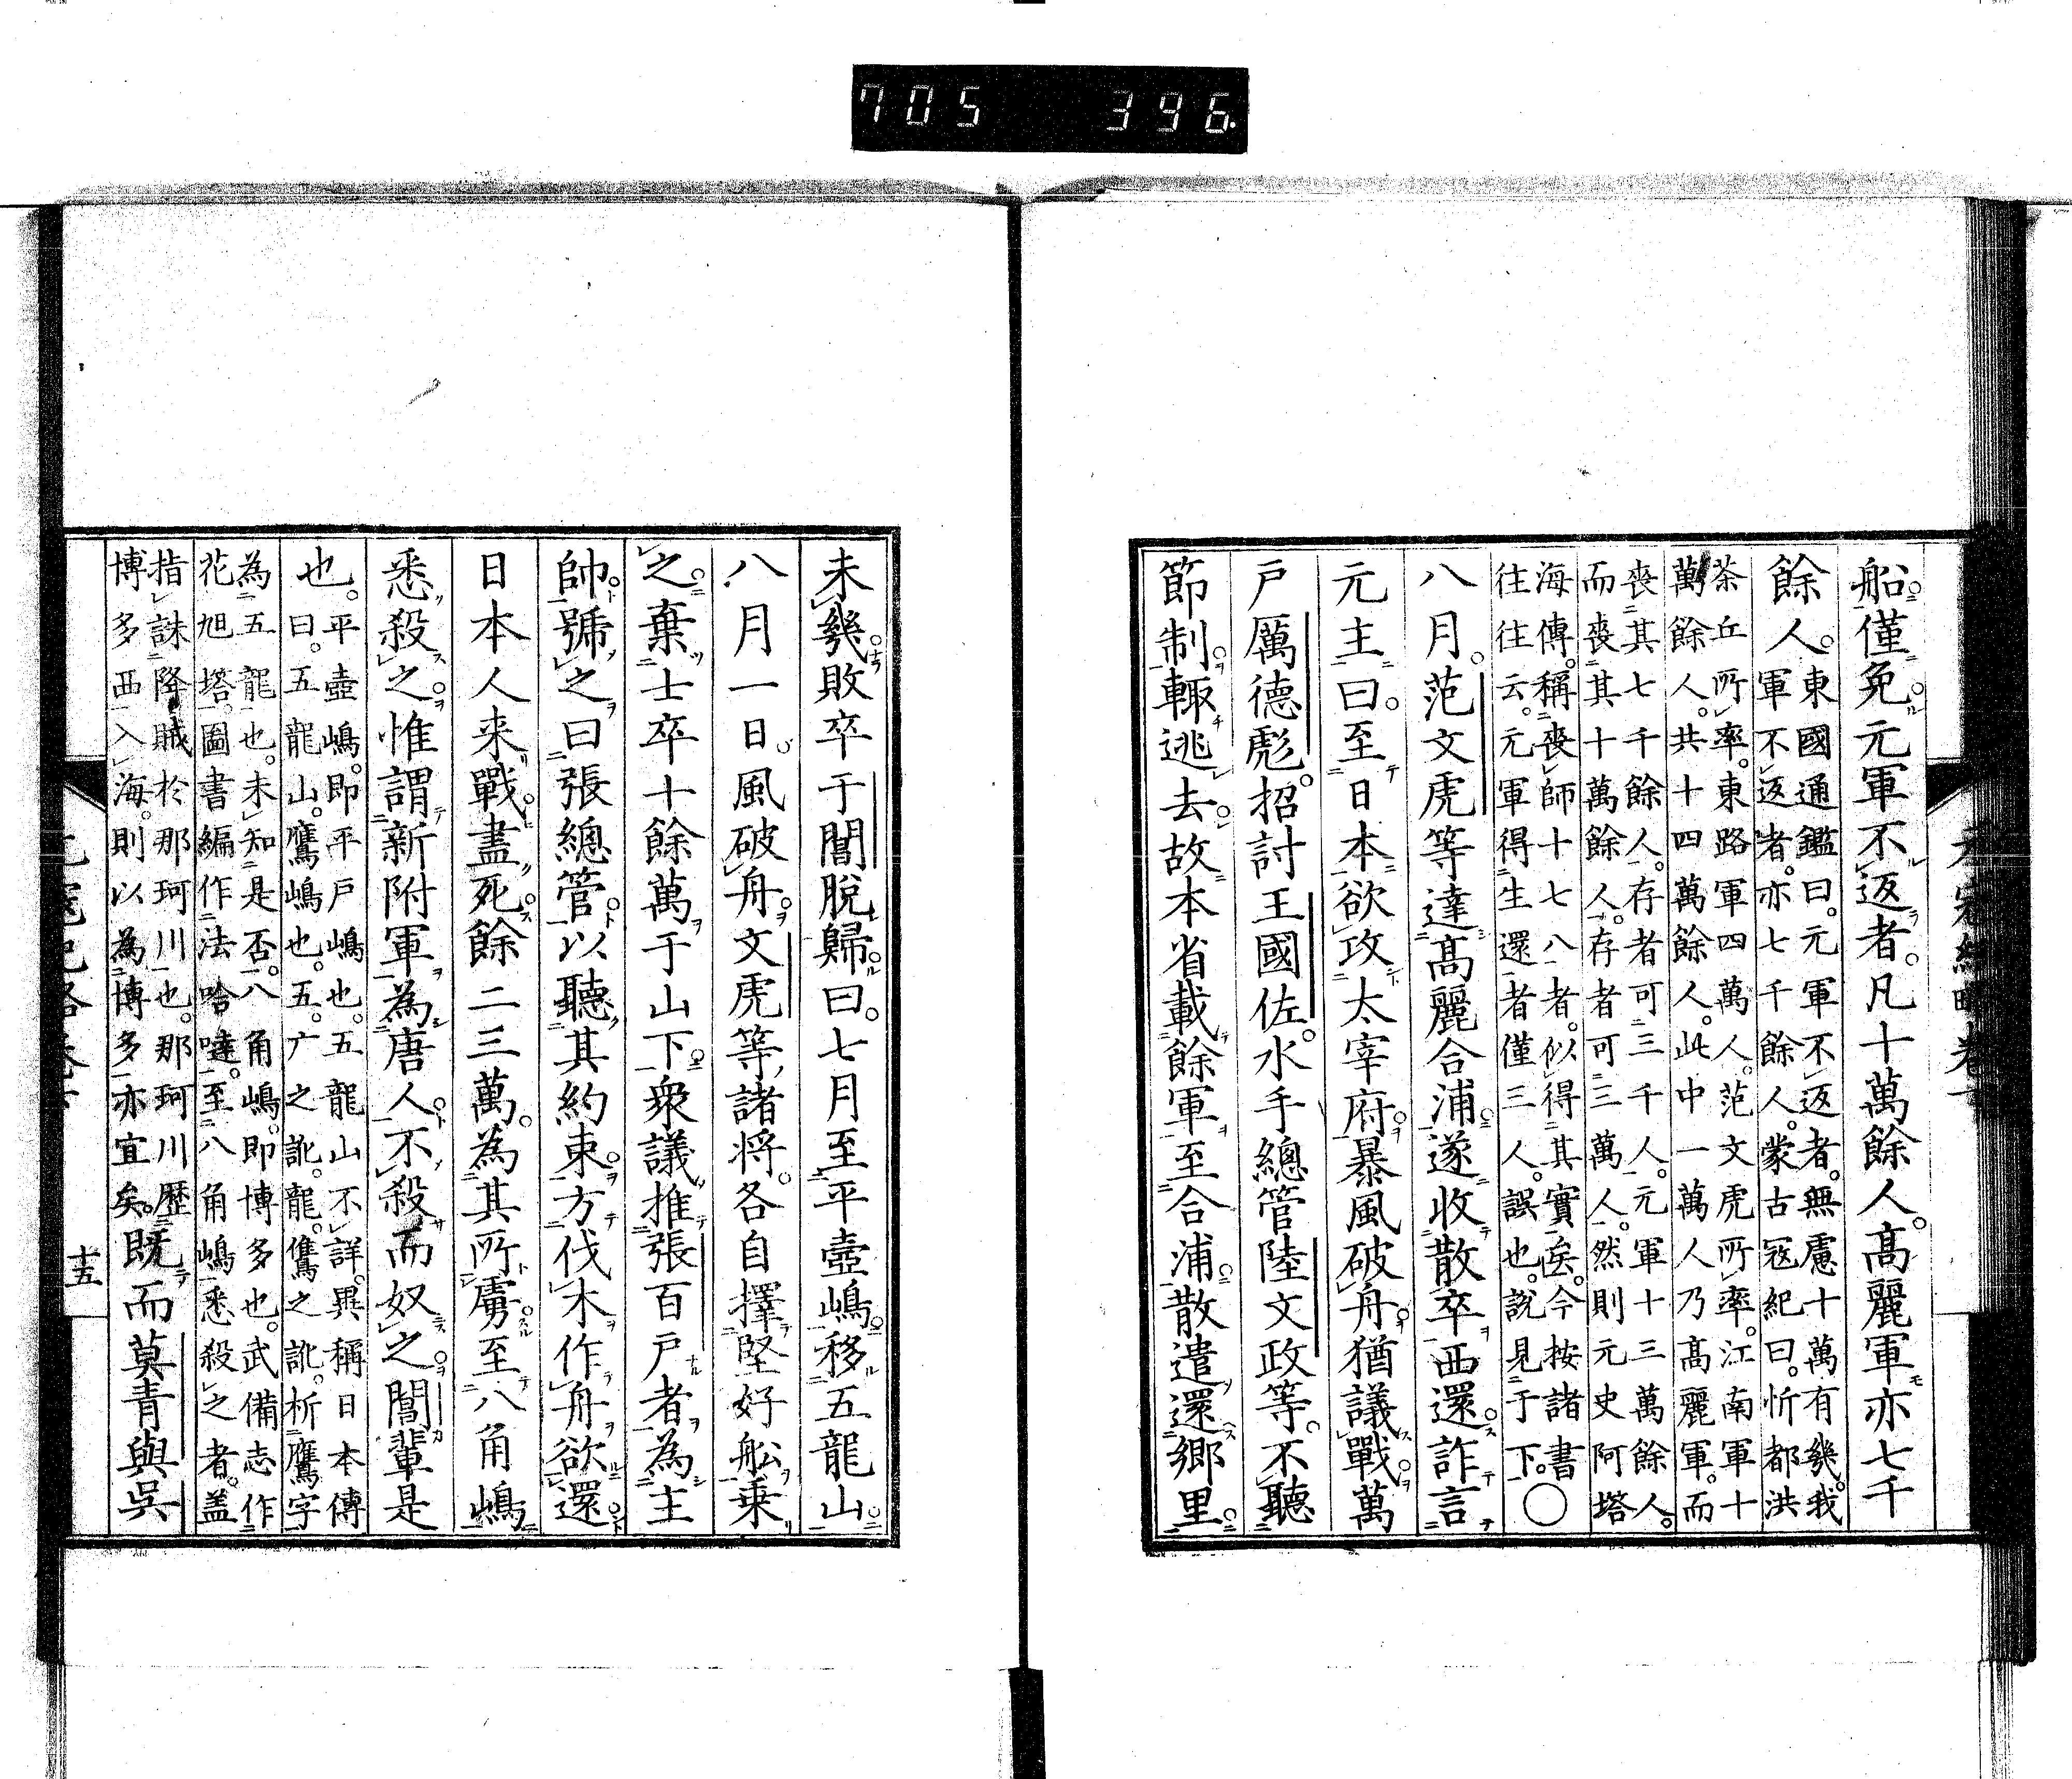 705 396.
船僅免元軍不返者。凡十萬餘人。高麗軍亦七千
餘人。東國通鑑曰。元軍不返者。無慮十萬有幾。我
軍不返者。亦七千餘人。蒙古冦紀曰。忻都洪
茶丘所率。東路軍四萬人。范文虎所率。江南軍十
萬餘人。共十四萬餘人。此中一萬人乃高麗軍。而
喪其七千餘人。存者可三千人。元軍十三萬餘人。
而喪其十萬餘人。存者可三萬人。然則元史阿塔
海傳。稱喪師十七八者。似得其實矣。今按諸書
往往云。元軍得生還者僅三人。誤也。說見于下。〇
八月。范文虎等達高麗合浦遂收散卒西還詐言
元主曰。至日本欲攻太宰府暴風破舟猶議戰萬
戸厲德彪。招討王國佐。水手總管陸文政等。不聽
節制輙逃去故本省載餘軍至合浦散遣還鄉里
未幾敗卒于閶脱歸曰。七月至平壺嶋移五龍山
八月一日風破舟文虎等諸将。各自擇堅好舩乗
之棄士卒十餘萬于山下衆議推張百戸者為主
帥號之曰張總管以聽其約束方伐木作舟欲還
日本人来戰盡死餘二三萬。為其所虜至八角嶋
悉殺之惟謂新附軍為唐人不殺而奴之閶輩是
也。平壺嶋。即平戸嶋也。五龍山不詳。異稱日本傳
曰。五龍山。鷹嶋也。五。广之訛。龍。隽之訛。析鷹字
為五龍也。未知是否。八角嶋。即博多也。武備志作
花旭塔。圖書編作法哈噠。至八角嶋悉殺之者。盖
指誅降賊於那珂川也。那珂川歴
博多西入海。則以為博多亦宜矣。既而莫青與吳
十五